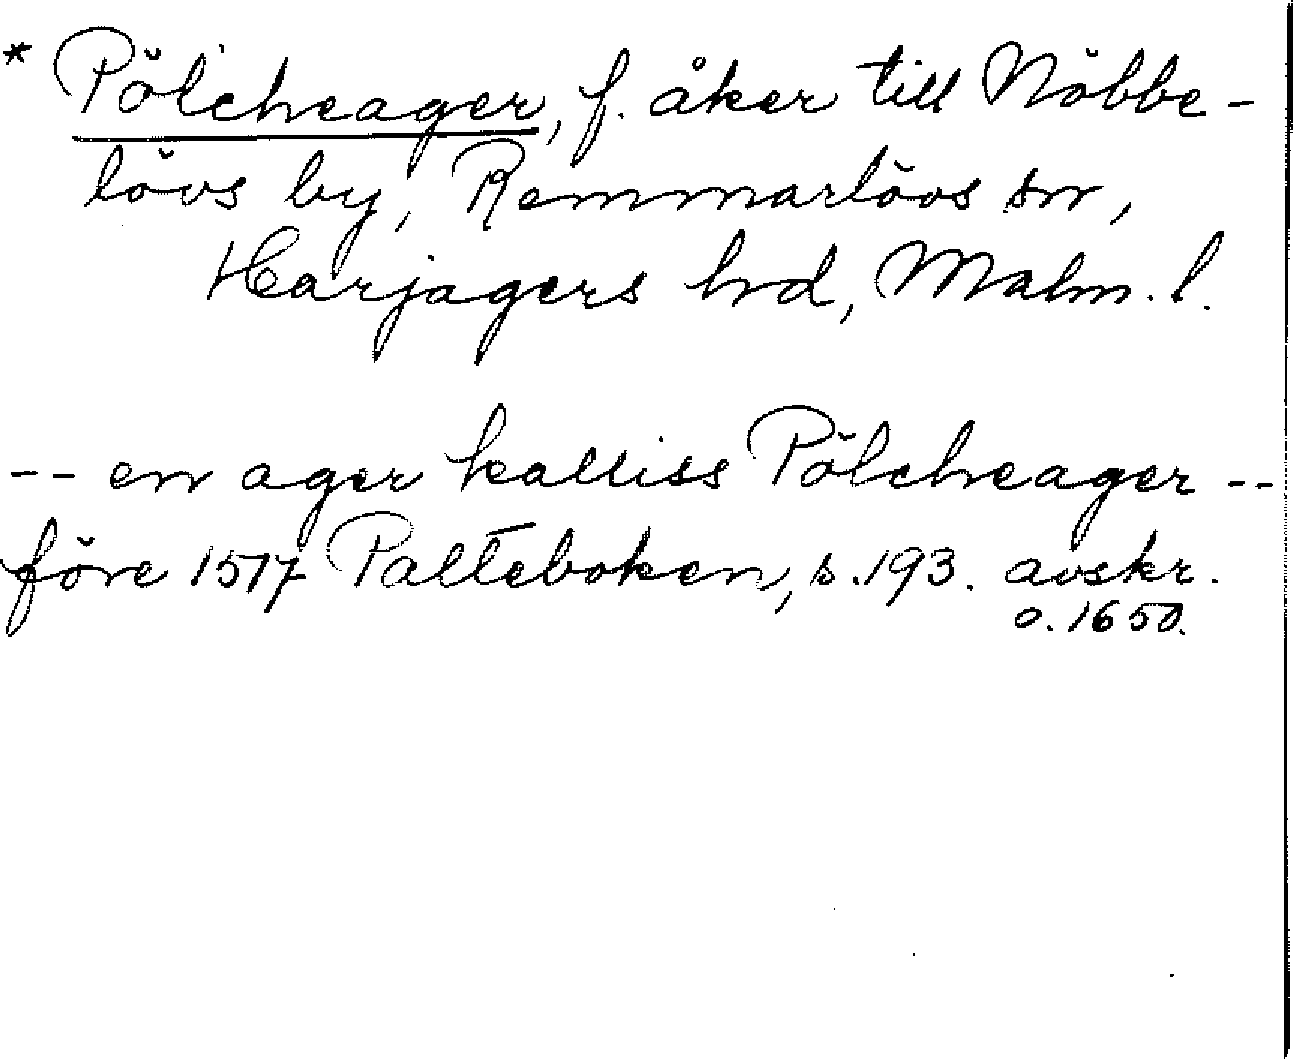 * Pölcheager, f. åker till Nöbbe-
lövs by, Remmarlövs sn,
Harjagers hd, Malm. l.
-- en ager kalliss Pölcheager --
före 1517 Palteboken, s. 193. avskr.
o. 1650.